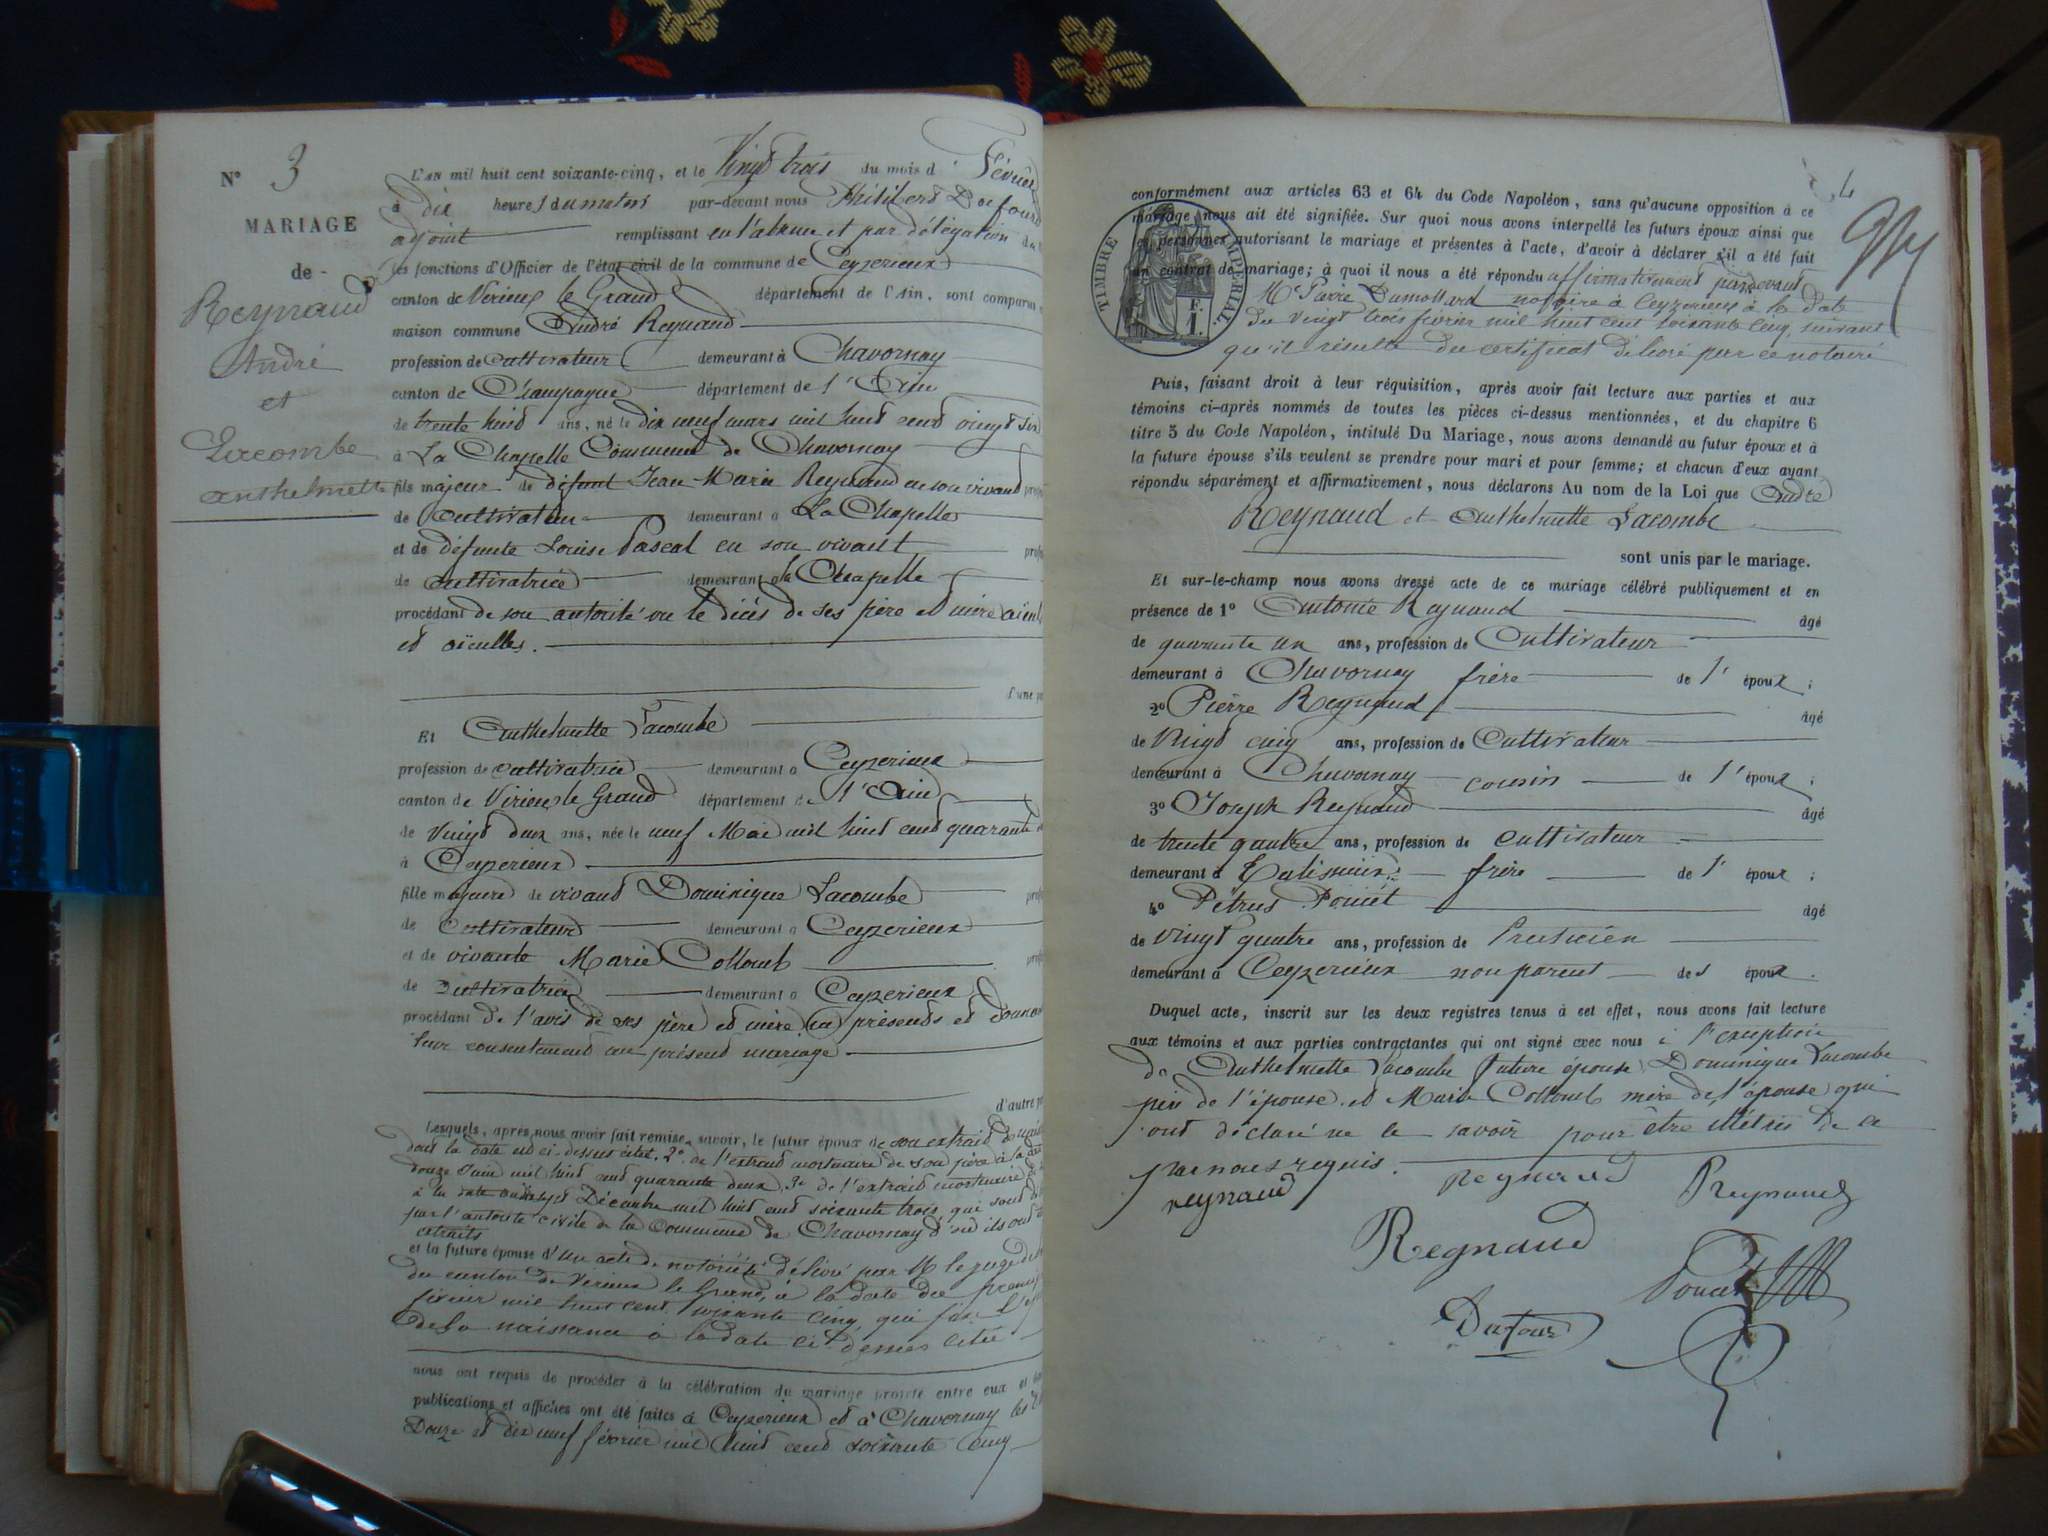 N° 3
MARIAGE
de
Reynaud
André
et
Lacombe
Anthelmette
L'AN mil huit cent soixante-cinq, et le Vingt trois du mois d Février
à dix heures du matin par-devant nous Philibert Dufour
adjoint remplissant en l'absence et par délégation
les fonctions d'Officier de l'état civil de la commune de Ceyzerieux
canton de Virieux le Grand département de l'Ain, sont comparus
maison commune André Reynaud
profession de cultivateur demeurant à Chavornay
canton de Champagne département de l'Ain
de trente huit ans, né le dix neuf mars mil huit cent vingt six
à La Chapelle Commune de Chavornay
fils majeur de défunt Jean Marie Reynaud en son vivant
de cultivateur demeurant à La Chapelle
et de défunte Louise Pascal en son vivant
de cultivatrice demeurant à la Chapelle
procédant de son autorité vu le décès de ses père et mère
et aïeulles.
d'une
Et Anthelmette Lacombe
profession de cultivatrice demeurant à Ceyzerieux
canton de Virieux le Grand département de l'Ain
de Vingt deux ans, née le neuf Mai mil huit cent quarante
à Ceyzerieux
fille majeure de vivant Dominique Lacombe
de cultivateur demeurant à Ceyzerieux
et de vivante Marie Collomb
de cultivatrice demeurant à Ceyzerieux
procédant de l'avis de ses père et mère ici présents et donnant
leur consentement au présent mariage
d'autre
Lesquels, après nous avoir fait remise, savoir, le futur époux de son extrait de
dont la date est ci-dessus citée. 2° de l'extrait mortuaire de son père à la
douze Juin mil huit cent quarante deux, 3° de l'extrait mortuaire
à la date du Décembre mil huit cent soixante trois, qui sont
par l'autorité civile de la Commune de Chavornay d'où ils ont
extraits
et la future épouse d'un acte de notoriété délivré par M le juge de
du canton de Virieux le Grand, à la date du premier
février mil huit cent soixante cinq, qui fixe
de sa naissance à la date ci dessus citée
nous ont requis de procéder à la célébration du mariage projeté entre eux et
publications et affiches ont été faites à Ceyzerieux et à Chavornay les
Douze et dix neuf février mil huit cent soixante cinq
4
conformément aux articles 63 et 64 du Code Napoléon, sans qu'aucune opposition à ce
mariage nous ait été signifiée. Sur quoi nous avons interpellé les futurs époux ainsi que
les personnes autorisant le mariage et présentes à l'acte, d'avoir à déclarer s'il a été fait
un contrat de mariage; à quoi il nous a été répondu affirmativement pardevant
Me Pierre Dumollard notaire à Ceyzerieux à la date
du vingt trois février mil huit cent soixante cinq, suivant
qu'il résulte du certificat délivré par ce notaire
TIMBRE IMPERIAL.
F.
1.
Puis, faisant droit à leur réquisition, après avoir fait lecture aux parties et aux
témoins ci-après nommés de toutes les pièces ci-dessus mentionnées, et du chapitre 6
titre 5 du Code Napoléon, intitulé Du Mariage, nous avons demandé au futur époux et à
la future épouse s'ils veulent se prendre pour mari et pour femme; et chacun d'eux ayant
répondu séparément et affirmativement, nous déclarons Au nom de la Loi que André
Reynaud et Anthelmette Lacombe
sont unis par le mariage.
Et sur-le-champ nous avons dressé acte de ce mariage célébré publiquement et en
présence de 1° Antonie Reynaud âgé
de quarante un ans, profession de Cultivateur
demeurant à Chavornay frère de l' époux;
2° Pierre Reynaud âgé
de Vingt cinq ans, profession de Cultivateur
demeurant à Chavornay cousin de l' époux;
3° Joseph Reynaud âgé
de trente quatre ans, profession de cultivateur
demeurant à Talissieux frère de l' époux;
4° Pétrus Poncet âgé
de vingt quatre ans, profession de
demeurant à Ceyzerieux non parent des époux.
Duquel acte, inscrit sur les deux registres tenus à cet effet, nous avons fait lecture
aux témoins et aux parties contractantes qui ont signé avec nous à l'exception
de Anthelmette Lacombe future épouse, Dominique Lacombe
père de l'épouse et Marie Collomb mère de l'épouse qui
ont déclaré ne le savoir pour être illétrés de ce
par nous requis.
reynaud Reynaud Reynaud
Regnaud Poncet
Dufour